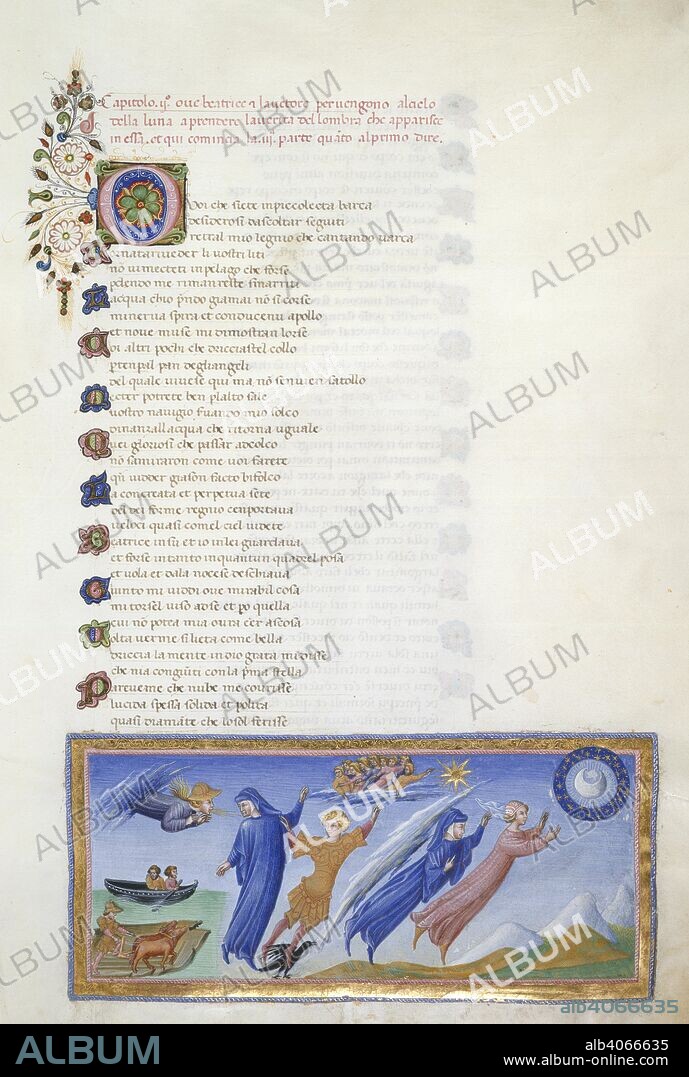 Capitolo .ijº. oue beatrice & lauctore peruengono alcielo
della luna aprendere lauerita del lombra che apparisce
in essa. et qui comincia la .iij. parte quāto alprimo dire.
O Voi che siete inpiccioletta barca
desiderosi dascoltar seguiti
retral mio legno che cantando uarca
Tornatariueder li uostri liti
nō ui mectete in pelago che forse
pdendo me rimareste smarriti
Lacqua chio pndo giamai nō si corse
minerua spira et conducemi apollo
et noue muse mi dimostran lorse
Voi altri pochi che drizzastel collo
ptempal pan degliangeli
del quale uiuesi qui ma nō senuien satollo
Metter potete ben plalto sale
uostro nauigio suando mio solco
dinanzallacqua che ritorna uguale
Quei gloriosi che passar adcolco
nō samiraron come uoi farete
qñ uidder giason facto bifolco
La concreata et perpetua sete
del dei forme regnio cenportaua
ueloci quasi comel ciel uedete
Beatrice insu et io inlei guardaua
et forse intanto inquantun quadrel posa
et uola et dala noce se deschiaua
Giunto mi uiddi oue mirabil cosa
mi torsel uiso adse et po quella
cui nō potea mia oura eēr ascosa
Volta uerme si lieta come bella
drizza la mente indio grata mi disse
che nia congiūti conla pma stella
Pareueme che nube mi coprisse
lucida spessa solida et polita
quasi diamāte che losol ferisse
ALBUM
alb4066635
ALBUM
alb4066635
www.album-online.com